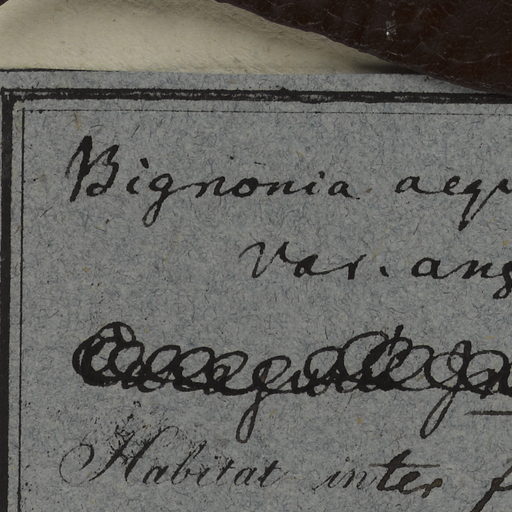 Bignonia aequ
Var. ang
Habitat inter f